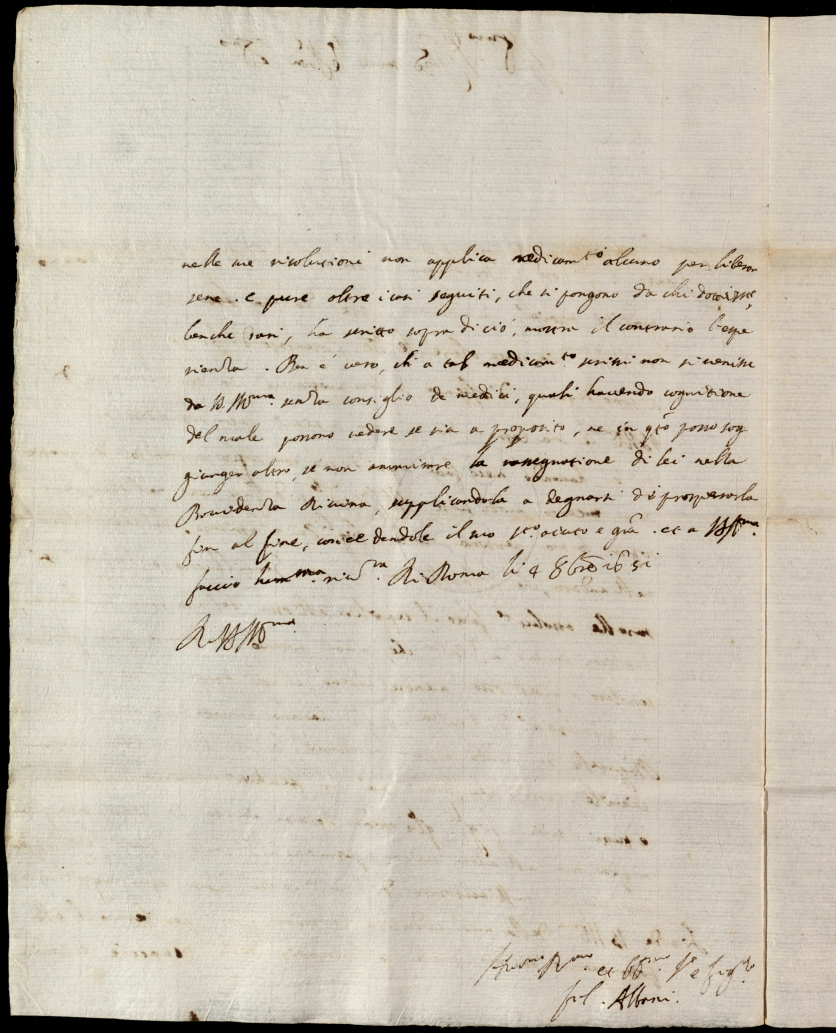 nelle sue risolutioni non applica medicam.to alcuno per liberar
sene. e pure oltre i casi seguiti, che si pongono da chi
benche rari, ha scritto sopra di ciò, mostra il contrario l'espe
rienza. Ben è vero, ch'a tal medicam.to scrissi non si venisse
da V.S. Ill.ma senza consiglio de medici, quali havendo cognitione
del male possono vedere se sia a proposito, ne in q.to posso sog
giunger altro, se non ammirare la rassegnatione di lei nella
Providenza Divina, supplicandola a degnarsi di prosperarla
fin al fine, concedendole il suo s.to aiuto e gr̃a. et a V.S. Ill.ma
faccio hum.ma riv.za Di Roma li 4 8bre 1651
Di V.S. Ill.ma
et s.re
Albani.